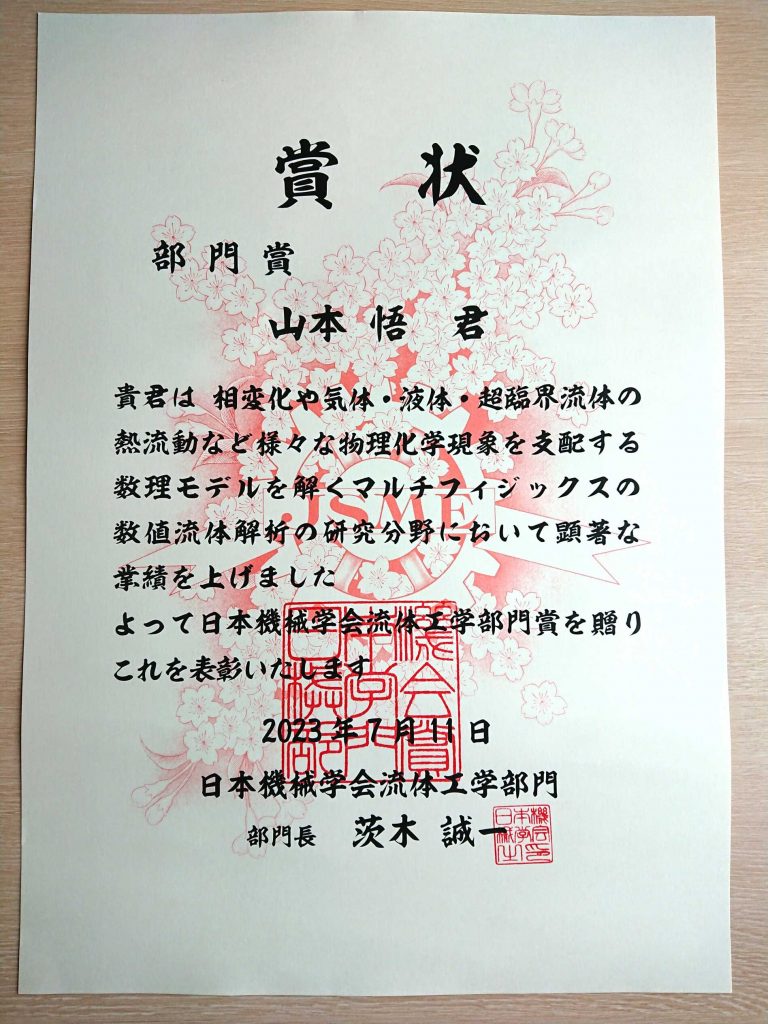 賞 状
部門賞
山本 悟 君
貴君は 相変化や気体・液体・超臨界流体の
熱流動など様々な物理化学現象を支配する
数理モデルを解くマルチフィジックスの
JSME
数値流体解析の研究分野において顕著な
業績を上げました
よって日本機械学会流体工学部門賞を贈り
これを表彰いたします
2023年7月11日
日本機械学会流体工学部門
部門長 茨木 誠一